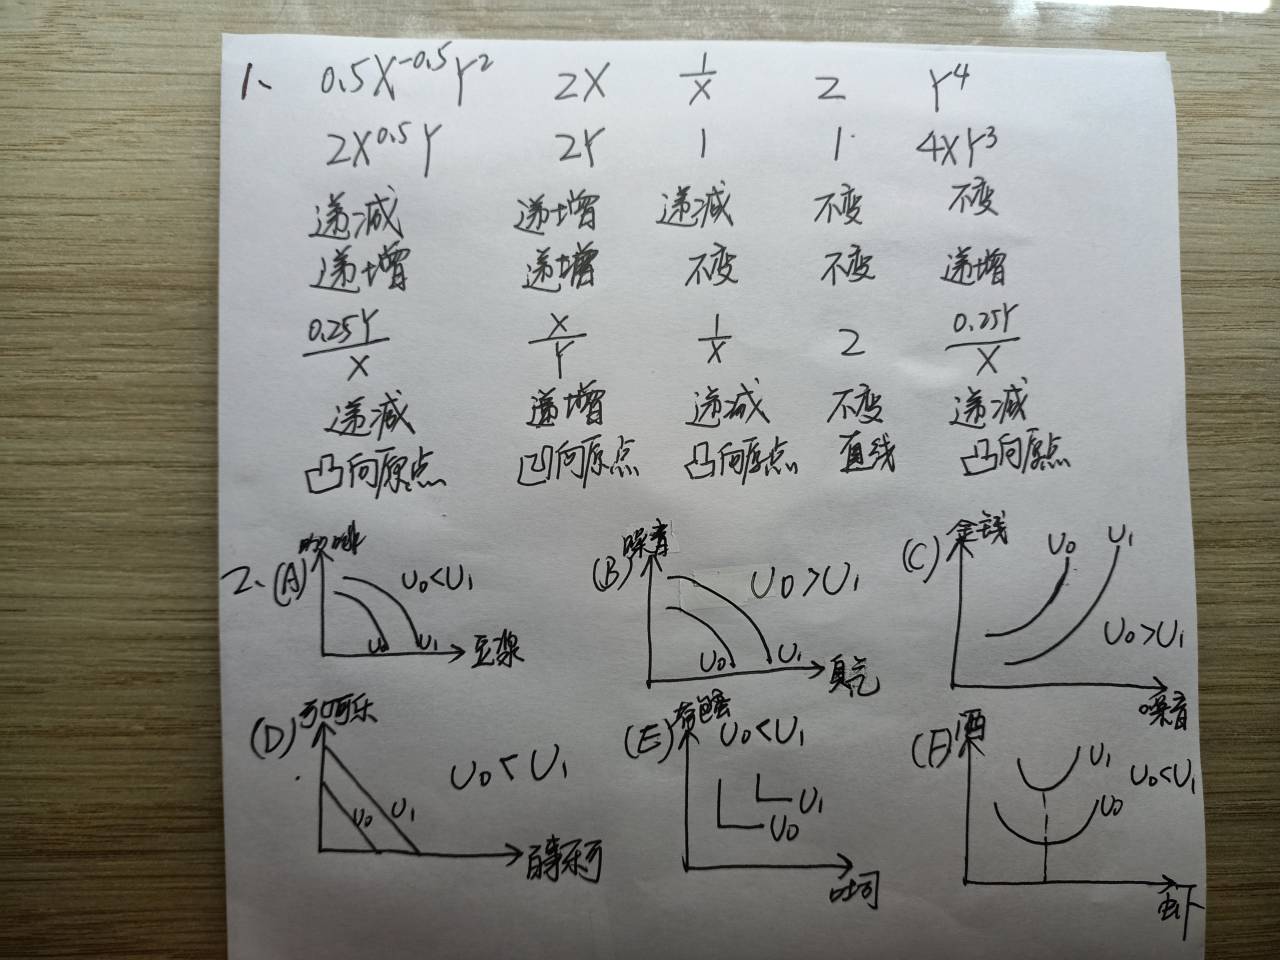 1、 0.5X^-0.5 Y^2 2X 1/X 2 Y^4
2X^0.5 Y 2Y 1 1 4XY^3
递减 递增 递减 不变 不变
递增 递增 不变 不变 递增
0.25Y/X X/Y 1/X 2 0.25Y/X
递减 递增 递减 不变 递减
凸向原点 凹向原点 凸向原点 直线 凸向原点
2、(A) 咖啡 U0<U1 U0 U1 豆浆
(B) 噪音 U0>U1 U0 U1 臭气
(C) 金钱 U0 U1 U0>U1 噪音
(D) 可口可乐 U0<U1 U0 U1 百事可乐
(E) U0<U1 U1 U0 吐司
(F) 酒 U1 U0<U1 U0 虾